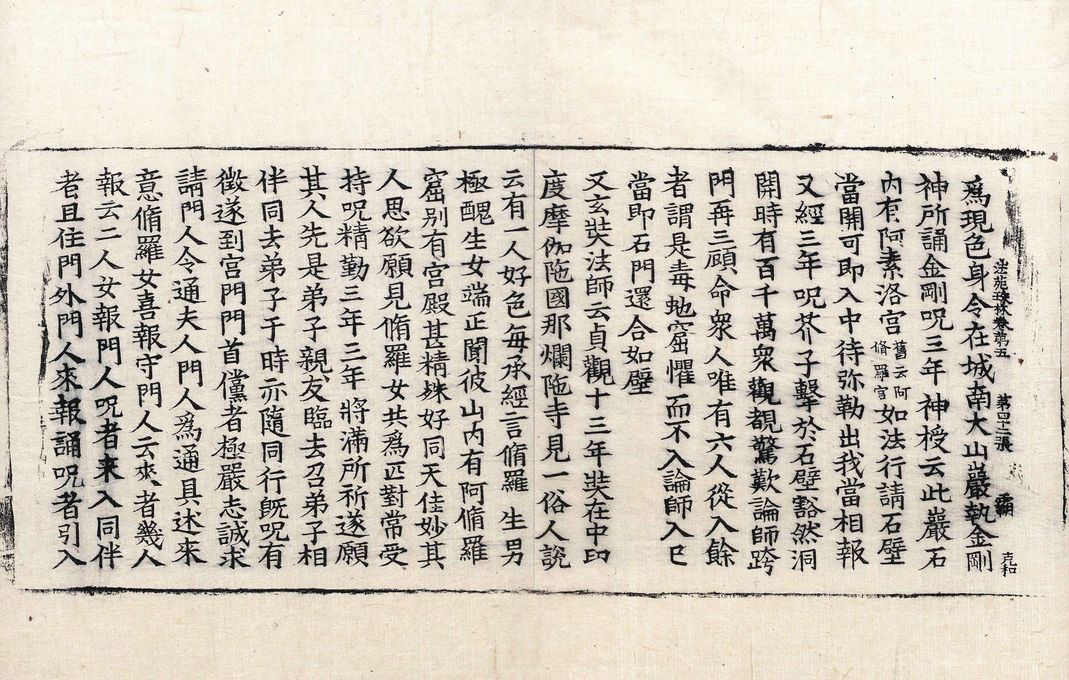 法苑珠林卷第五　第四十二張　霸　克和
爲現色身令在城南大山巖執金剛
神所誦金剛呪三年神授云此巖石
內有阿素洛宮舊云阿脩羅宮如法行請石壁
當開可即入中待弥勒出我當相報
又經三年呪芥子擊於石壁豁然洞
開時有百千萬衆觀覩驚歎論師跨
門再三顧命衆人唯有六人從入餘
者謂是毒虵窟懼而不入論師入已
當即石門還合如壁
又玄奘法師云貞觀十三年奘在中印
度摩伽陁國那爛陁寺見一俗人說
云有一人好色每承經言脩羅生男
極醜生女端正聞彼山內有阿脩羅
窟別有宮殿甚精殊好同天佳妙其
人思欲願見脩羅女共爲匹對常受
持呪精勤三年三年將滿所祈遂願
其人先是弟子親友臨去召弟子相
伴同去弟子于時亦隨同行旣呪有
徵遂到宮門門首儻者極嚴志誠求
請門人令通夫人門人爲通具述來
意脩羅女喜報守門人云來者幾人
報云二人女報門人呪者來入同伴
者且住門外門人來報誦呪者引入